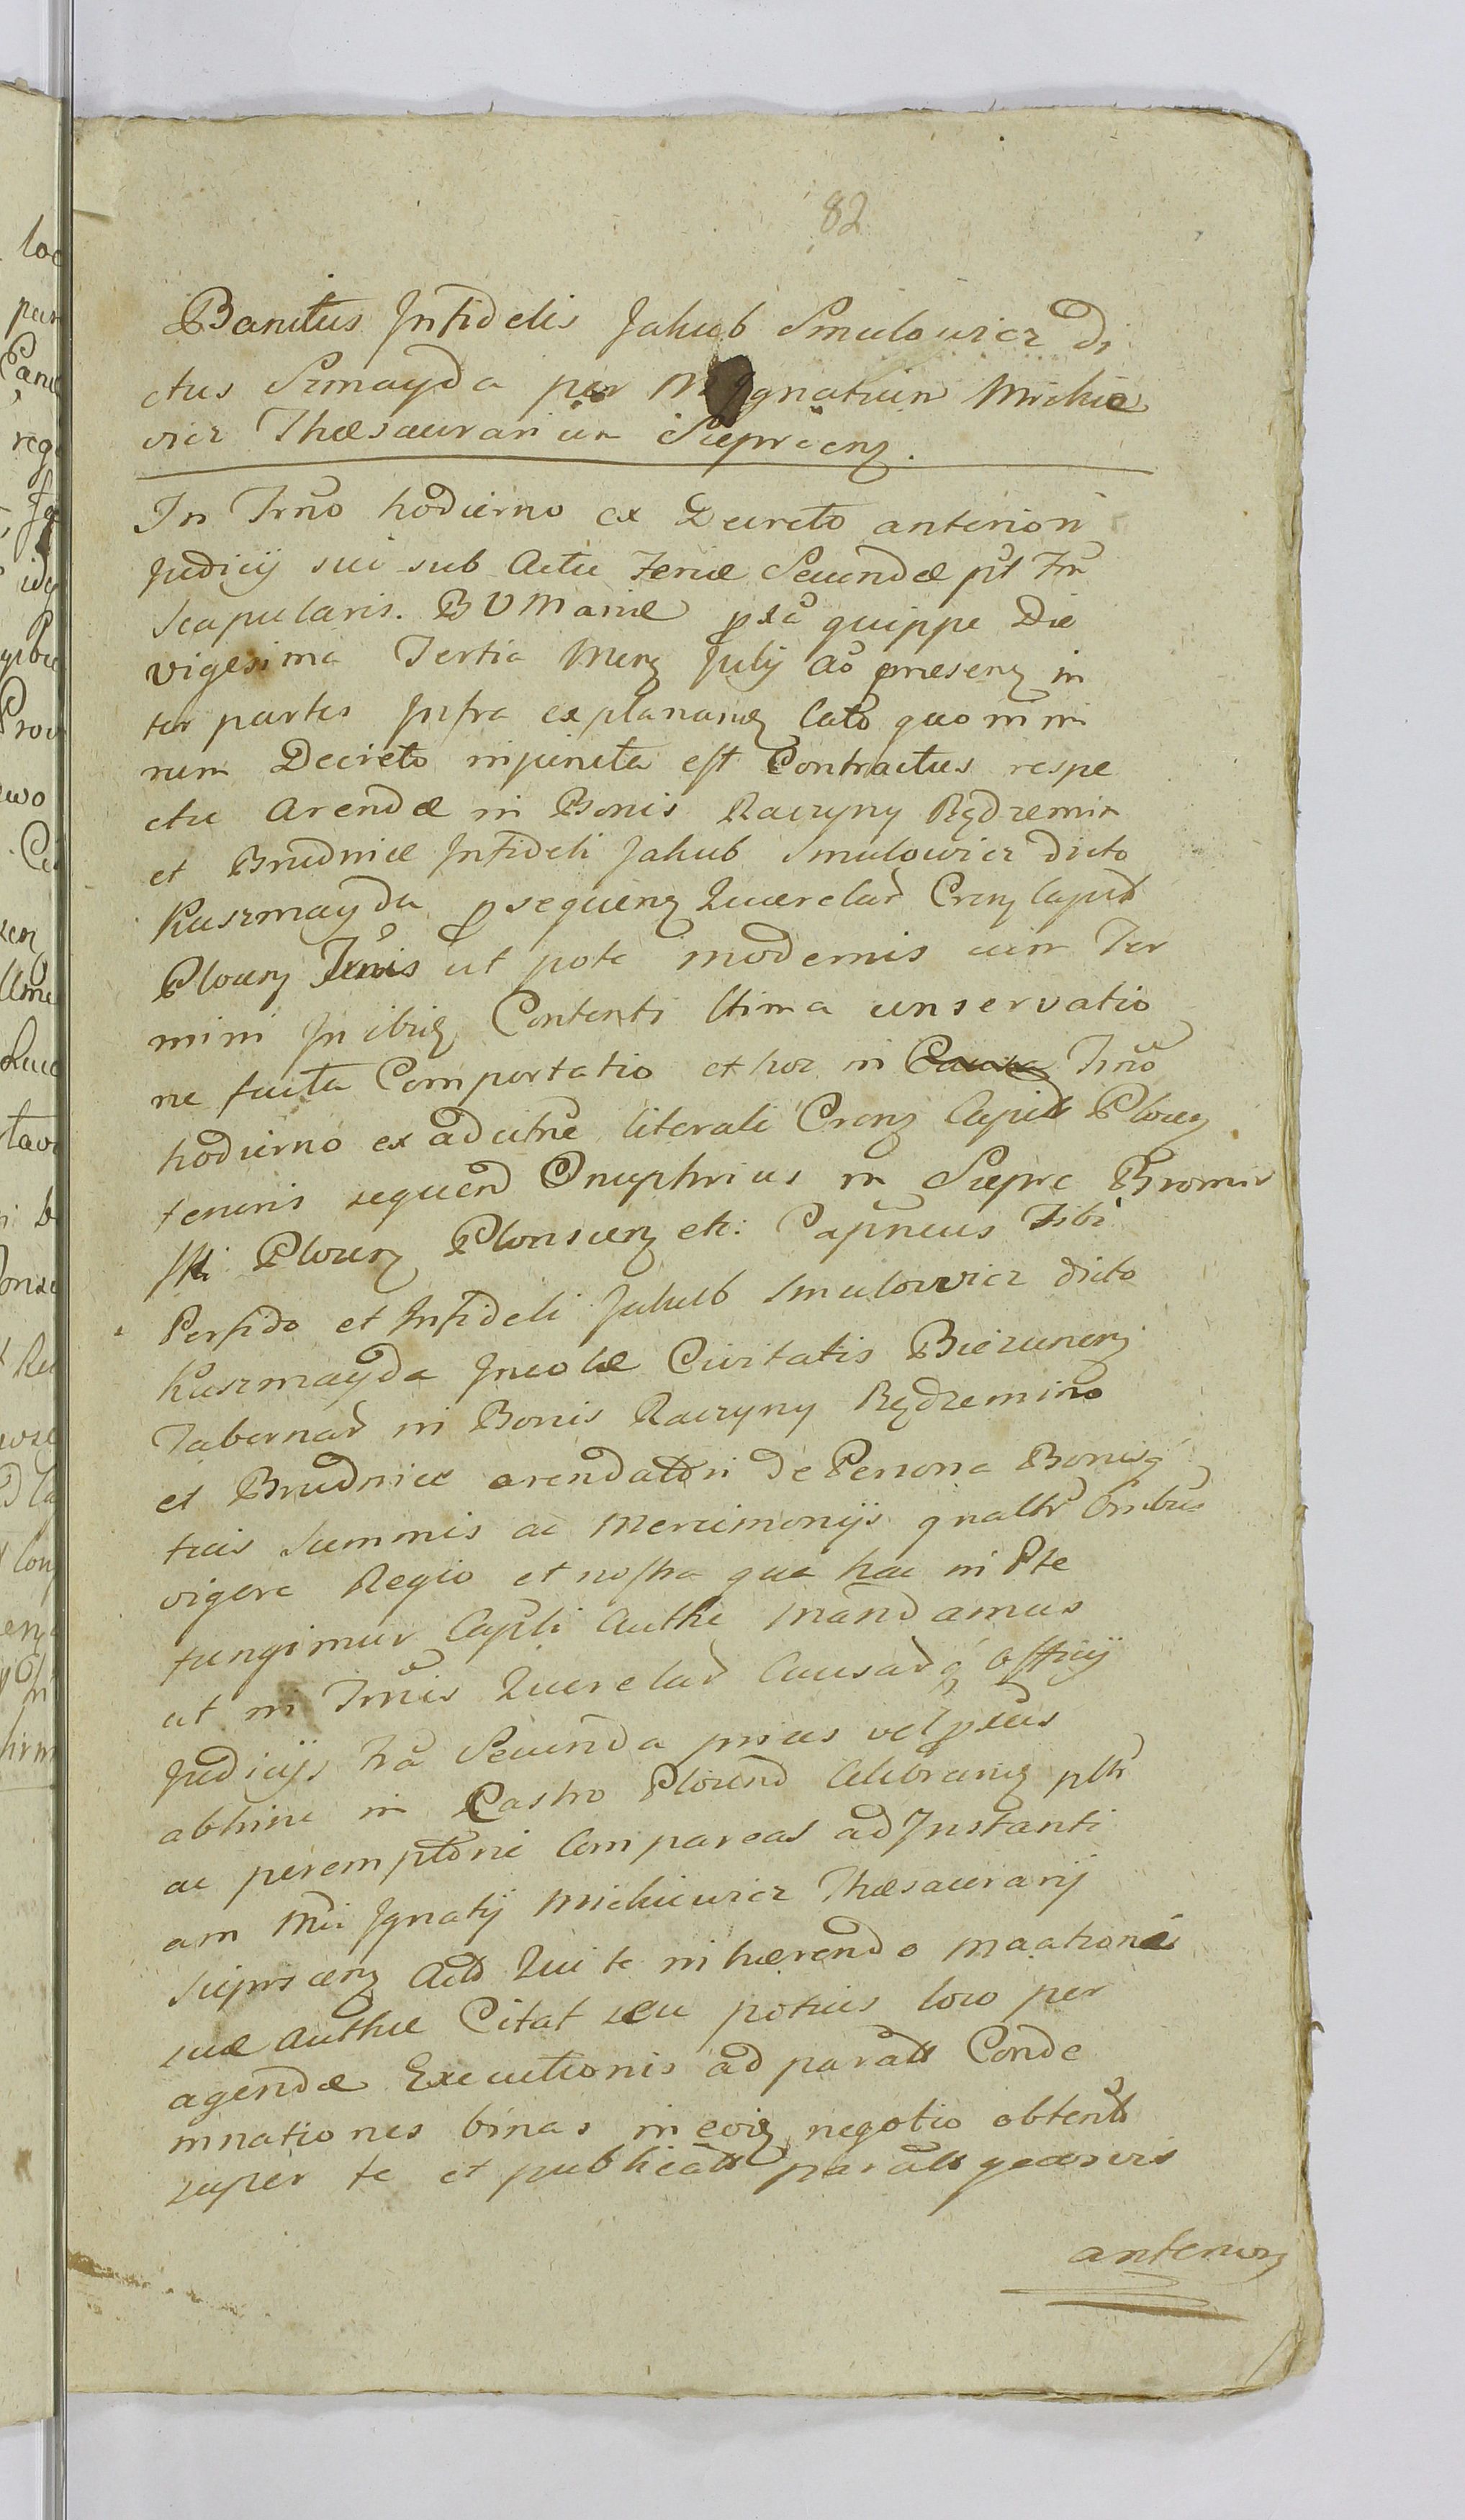 82
Banitus Infidelis Jakub Smulowicz di
ctus Szmayda per M Ignatium Mickie
vicz Thesaurarium Sieprcens.
In Trno hodierno ex Decreto anteriori
Judicij sui sub Actu Feriæ Secundæ pst Ftm
Scapularis. B V Mariæ pxa quippe Die
vigesima Tertia Mens Julij Ao præsens in
ter partes Infra explanans lato quo nimi
rum Decreto injuncta est Contractus respe
ctu Arendæ in Bonis Raczyny Rędzemin
et Brudnice Infideli Jakub Smulowicz dicto
Kuszmayda psequens Querelar Crens Capit
Plocens Trnis ut pote modernis cum Ter
mini In ibiq Contenti ltima conservatio
ne facta Comportatio et hoc in Trno
hodierno ex adcitne literali Crens Capit Plocens
tenoris sequen Onuphrius in Sieprc Bromir
ski Plocens Plonscens etc: Capneus Tibi
Perfido et Infideli Jakub Smulowicz dicto
Kuszmayda Incolæ Civitatis Biezunens
Tabernar in Bonis Raczyny Rędzemino
et Brudnice arendatori de Persona Bonisq
tuis Summis ac Mercimonijs gnaltr Omibus
vigore Regio et nostra qua hac in Pte
fungimur Capli Authe Mandamus
ut in Trnis Querelar Causarq Officij
Judicijs Fra Secunda prius vel pxius
abhinc in Castro Plocen Celebrans pltr
ac peremptorie Compareas ad Instanti
am Mci Ignatij Mickiewicz Thesaurarij
Sieprscens Act Qui te inhærendo
suæ Authæ Citat seu potius loco per
agendæ Executionis ad parat Conde
mnationes binas in eoiq negotio obtent
super te et publicat parat quævis
anteriors